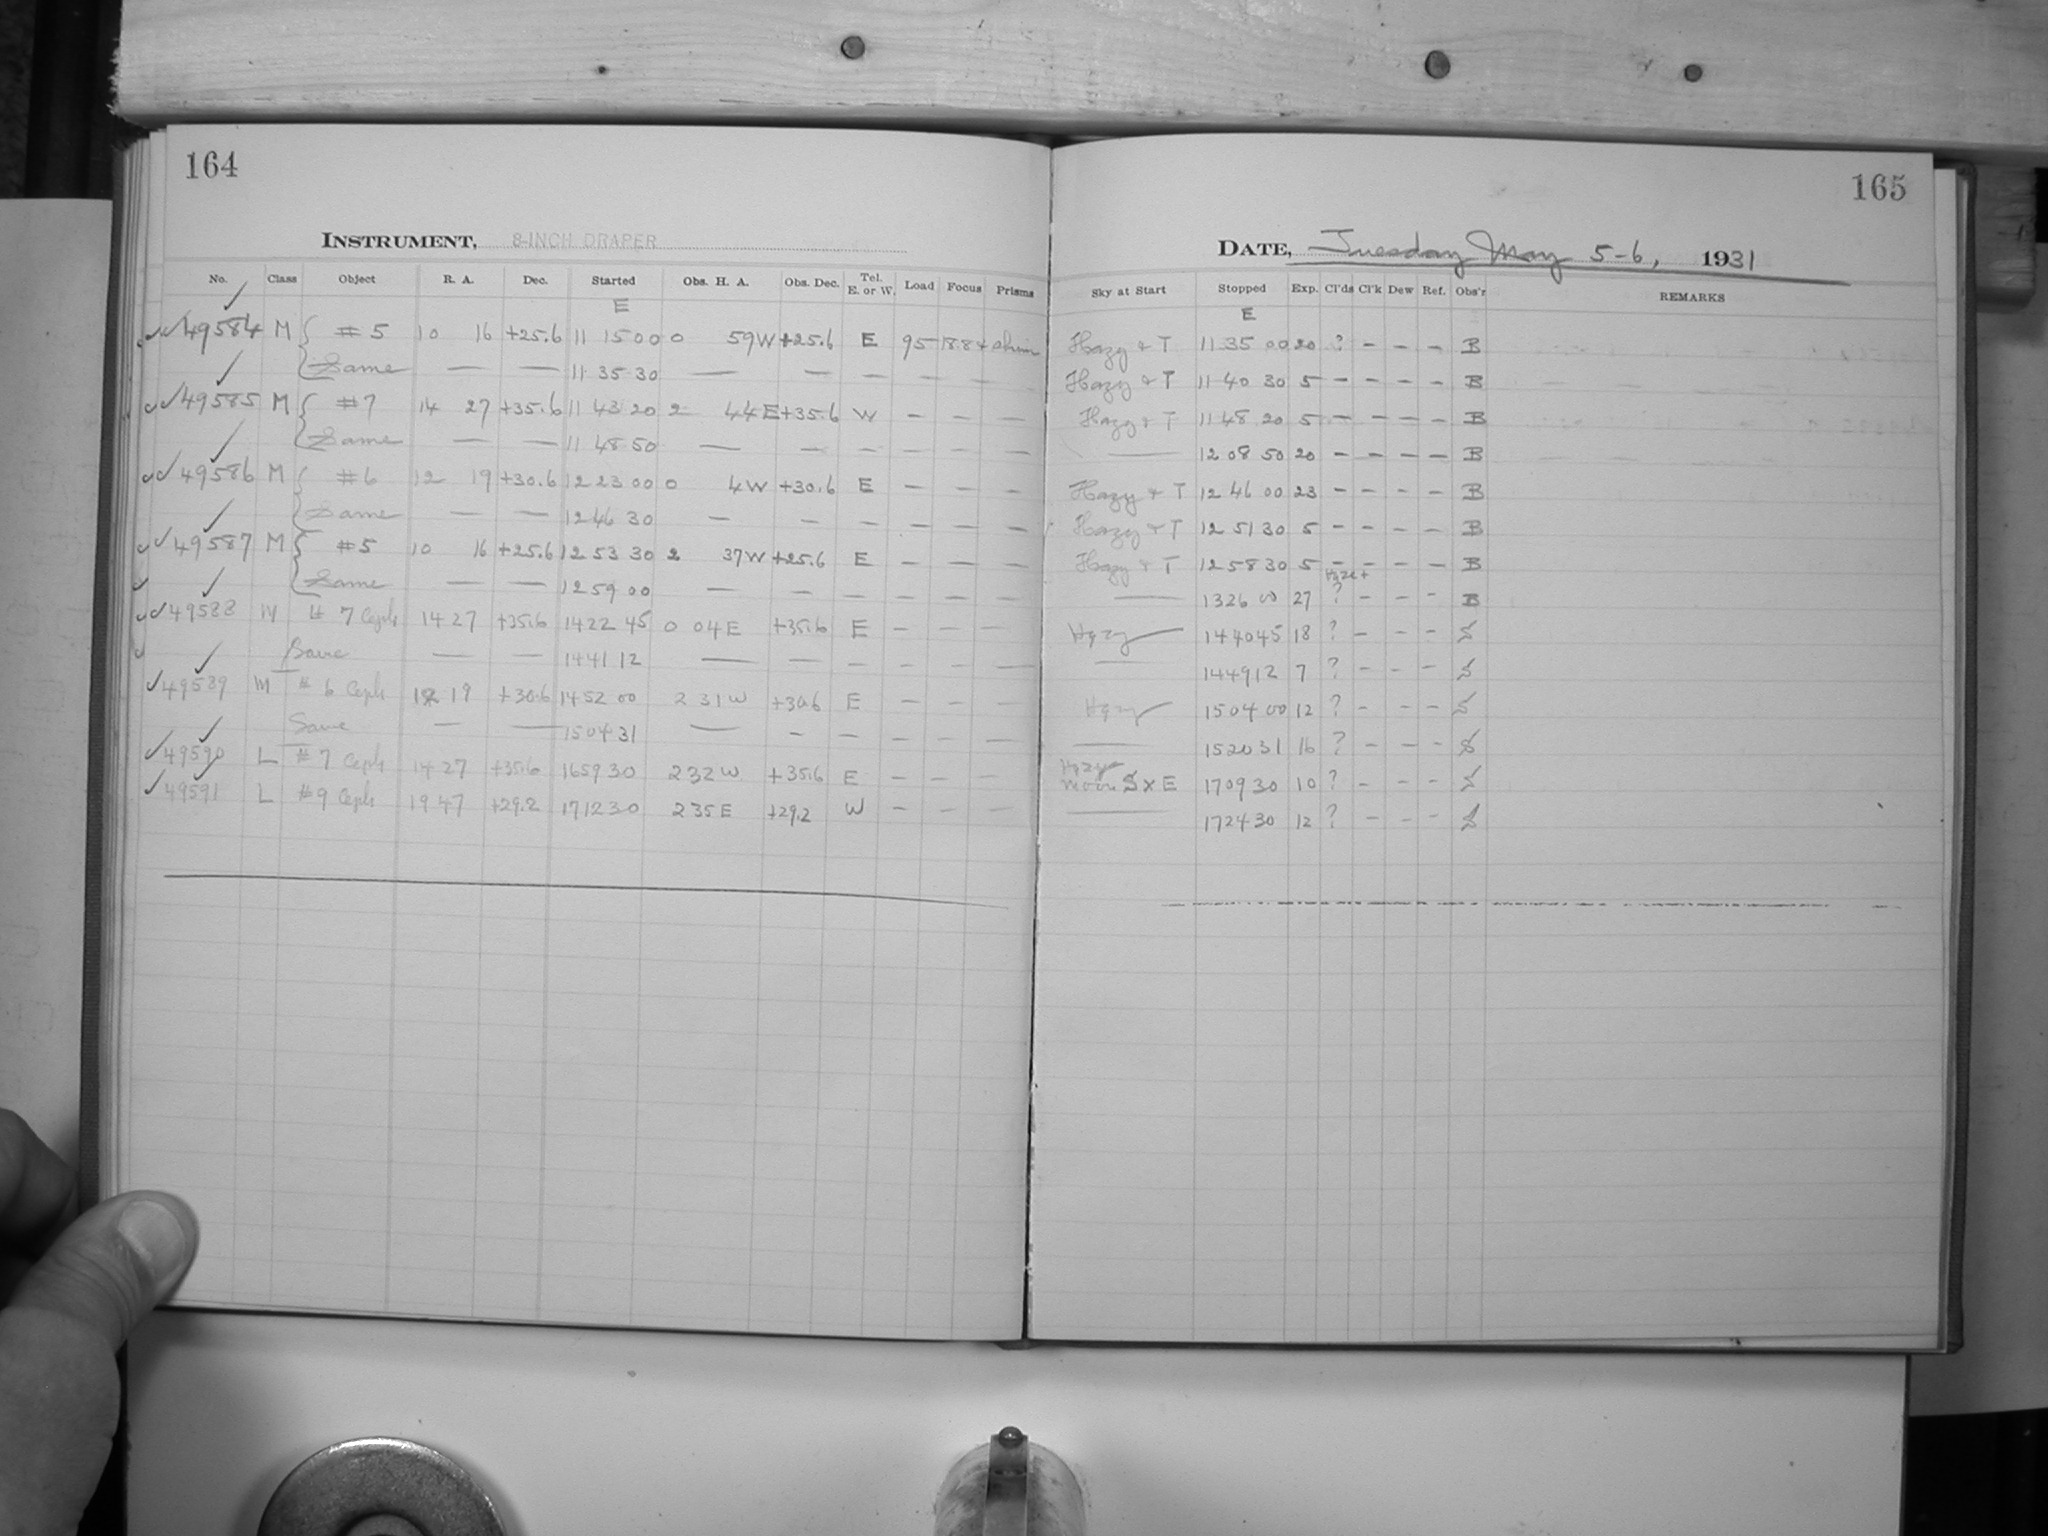 164
INSTRUMENT, 8-INCH DRAPER
No. Class Object R. A. Dec. Started Obs. H. A. Obs. Dec. Tel. E. or W. Load Focus Prisms
E
49584 M # 5 10 16 +25.6 11 15 00 0 59W +25.6 E 95 18.84
Same — — 11 35 30 — — — — — —
49585 M #7 14 27 +35.6 11 43 20 2 44E +35.6 W — — —
Same — — 11 48 50 — — — — — —
49586 M #6 12 19 +30.6 12 23 00 0 4W +30.6 E — — —
Same — — 12 46 30 — — — — — —
49587 M #5 10 16 +25.6 12 53 30 2 37W +25.6 E — — —
Same — — 12 59 00 — — — — — —
49588 M # 7 Ceph 14 27 +35.6 14 22 45 0 04E +35.6 E — — —
Same — — 14 41 12 — — — — — —
49589 M # 6 Ceph 12 19 +30.6 14 52 00 2 31W +30.6 E — — —
Same — — 15 04 31 — — — — — —
49590 L # 7 Ceph 14 27 +35.6 16 59 30 2 32W +35.6 E — — —
49591 L #9 Ceph 19 47 +29.2 17 12 30 2 35E +29.2 W — — —
165
DATE, Tuesday May 5-6, 1931
Sky at Start Stopped Exp. Cl'ds Cl'k Dew Ref. Obs'r REMARKS
E
Hazy + T 11 35 00 20 ? — — — B
Hazy + T 11 40 30 5 — — — — B
Hazy + T 11 48 20 5 — — — — B
— 12 08 50 20 — — — — B
Hazy + T 12 46 00 23 — — — — B
Hazy + T 12 51 30 5 — — — — B
Hazy + T 12 58 30 5 — — — — B
Haze +
— 13 26 00 27 ? — — — B
Hazy 14 40 45 18 ? — — — S
— 14 49 12 7 ? — — — S
Hazy 15 04 00 12 ? — — — S
— 15 20 31 16 ? — — — S
Hazy
Moon S x E 17 09 30 10 ? — — — S
— 17 24 30 12 ? — — — S